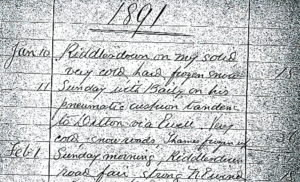 1891
Jan 10 Riddlesdown on my solid
very cold hard frozen snow
11 Sunday with Baily on his
pneumatic cushion tandem
to Ditton via Ewell. Very
cold, snow roads Thames frozen
Feb 1 Sunday morning, Riddlesdown
road fair strong N E wind